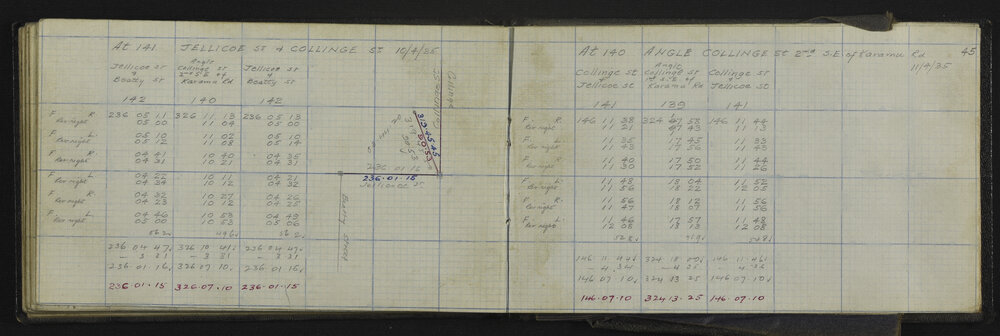 At 141 JELLICOE St & COLLINGE St 10/4/35
Angle
Jellicoe St Collinge St Jellicoe St
& 2nd S.E. of &
Beatty St Karamu Rd Beatty St
142 140 142
F. R. 236 05 11 326 11 13 236 05 13
Per right 05 00 11 04 05 00
F. L. 05 10 11 02 05 10
Per right 05 12 11 08 05 14
F. R. 04 41 10 40 04 35
Per right 04 31 10 21 04 31
F. L. 04 22 10 11 04 21
Per right 04 34 10 12 04 32
F. R. 04 32 10 27 04 26
Per right 04 23 10 12 04 25
F. L. 04 46 10 53 04 49
Per right 05 00 10 53 05 06
562 496 562
236 04 47 326 10 41 236 04 47
- 3 31 - 3 31 - 3 31
236 01 16 326 07 10 236 01 15
236·01·15 326·07·10 236·01·15
Collinge
236·01·15
236·01·15
Jellicoe St
Beatty Street
45
At 140 ANGLE COLLINGE St 2nd S.E. of Karamu Rd
11/4/35
Angle
Collinge St Collinge St Collinge St
& 1st S.E. of &
Jellicoe St Karamu Rd Jellicoe St
141 139 141
F. R. 146 11 38 324 17 53 146 11 44
Per right 11 21 17 43 11 13
F. L. 11 35 17 45 11 33
Per right 11 43 17 56 11 43
F. R. 11 40 17 50 11 44
Per right 11 30 17 32 11 26
F. L. 11 48 18 04 11 52
Per right 11 56 18 22 12 05
F. R. 11 56 18 12 11 56
Per right 11 47 18 07 11 56
F. L. 11 46 17 57 11 48
Per right 12 08 18 13 12 08
528 528
146 11 44 324 18 146 11 46
- 4 34 - 4 35 - 4 36
146 07 10 324 13 25 146 07 10
146·07·10 324·13·25 146·07·10